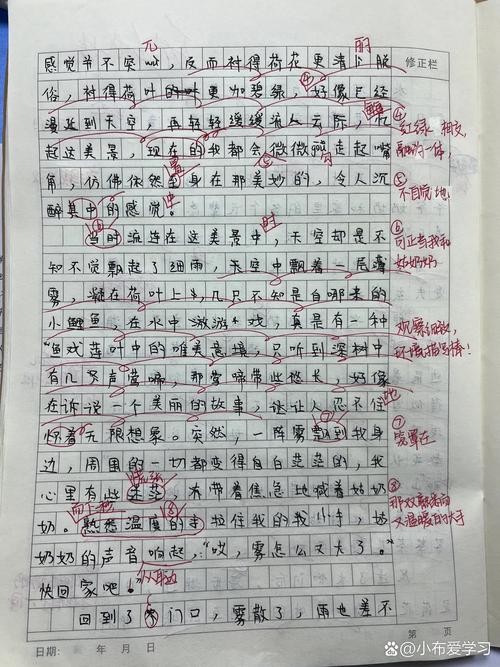 元 丽
感觉节不突wt，反而衬得荷花更清 脱
修正栏
俗，衬得荷叶的 更加碧绿，好像已经
④
漫延到天空，再轻轻缓缓流入云际，忆
④
红绿相支，
融为一体，
起这美景，现在的我都会微微 走起嘴
⑤ 勾
角，仿佛依然 身在那美妙的，令人沉
置
⑤
不自觉地
醉其中的感觉。
中
⑥ 时
当时流连在这美景中，天空却是不
⑥
可正者我和
姑奶奶
知不觉飘起了细雨，天空中飘着一层薄
雾，凝在荷叶上，几只不知是自哪来的
小鲤鱼，在水中游游 戏，真是有一种
观察细致，
环境描写棒！
“鱼戏莲叶中的唯美意境，只听到深树中
有几 声莺啼，那莺啼带些悠长，好像
在诉说一个美丽的故事，让让人忍不住
地
怀着无限想象。突然，一阵雾飘到我身
⑦
⑦
笼罩在
边，周围的一切都变得白白茫茫的，我
心里有些 ，有带着焦急地喊着姑奶
慌乱
⑧
那双飘着雨
又温暖的大手
奶。熟悉温度的手拉住我的我小手，姑
而上把 ⑧
奶奶的声音响起，“哎，雾怎么又大了。”
快回家吧！”
从耳边
回到了 门口，雾散了，雨也差不
日期： 年 月 日 第 页
@小布爱学习